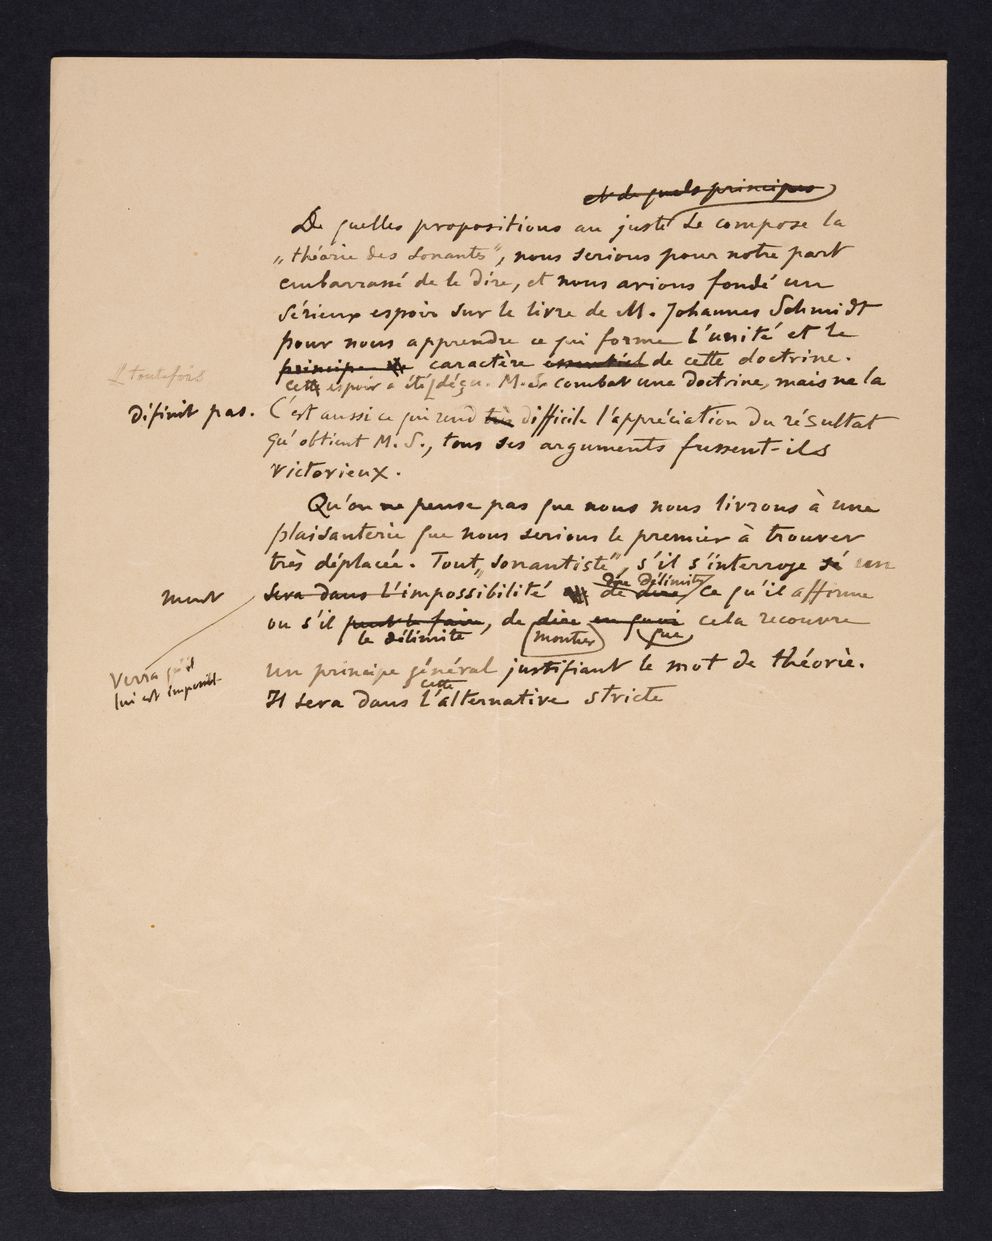 et de quels principes
De quelles propositions au juste se compose la
„théorie des sonantes", nous serions pour notre part
embarrassé de le dire, et nous avions fondé un
sérieux espoir sur le livre de M. Johannes Schmidt
pour nous apprendre ce qui forme l'unité et le
principe caractère essentiel de cette doctrine.
toutefois
cett espoir a été déçu. M. S. combat une doctrine, mais ne la
définit pas. C'est aussi ce qui rend très difficile l'appréciation du résultat
qu'obtient M. S., tous ses arguments fussent-ils
victorieux.
Qu'on ne pense pas que nous nous livrons à une
plaisanterie que nous serions le premier à trouver
très déplacée. Tout „sonantiste", s'il s'interroge un
dire délimiter
ment sera dans l'impossibilité de dire ce qu'il affirme
ou s'il peut le faire, de dire en quoi cela recouvre
le délimite montrer que
verra qu'il
lui est impossibl.
un principe général justifiant le mot de théorie.
cette
Il sera dans l'alternative stricte